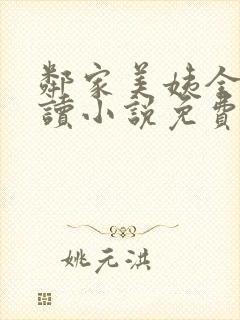 鄰家美姨全
讀小說免費
姚元淇